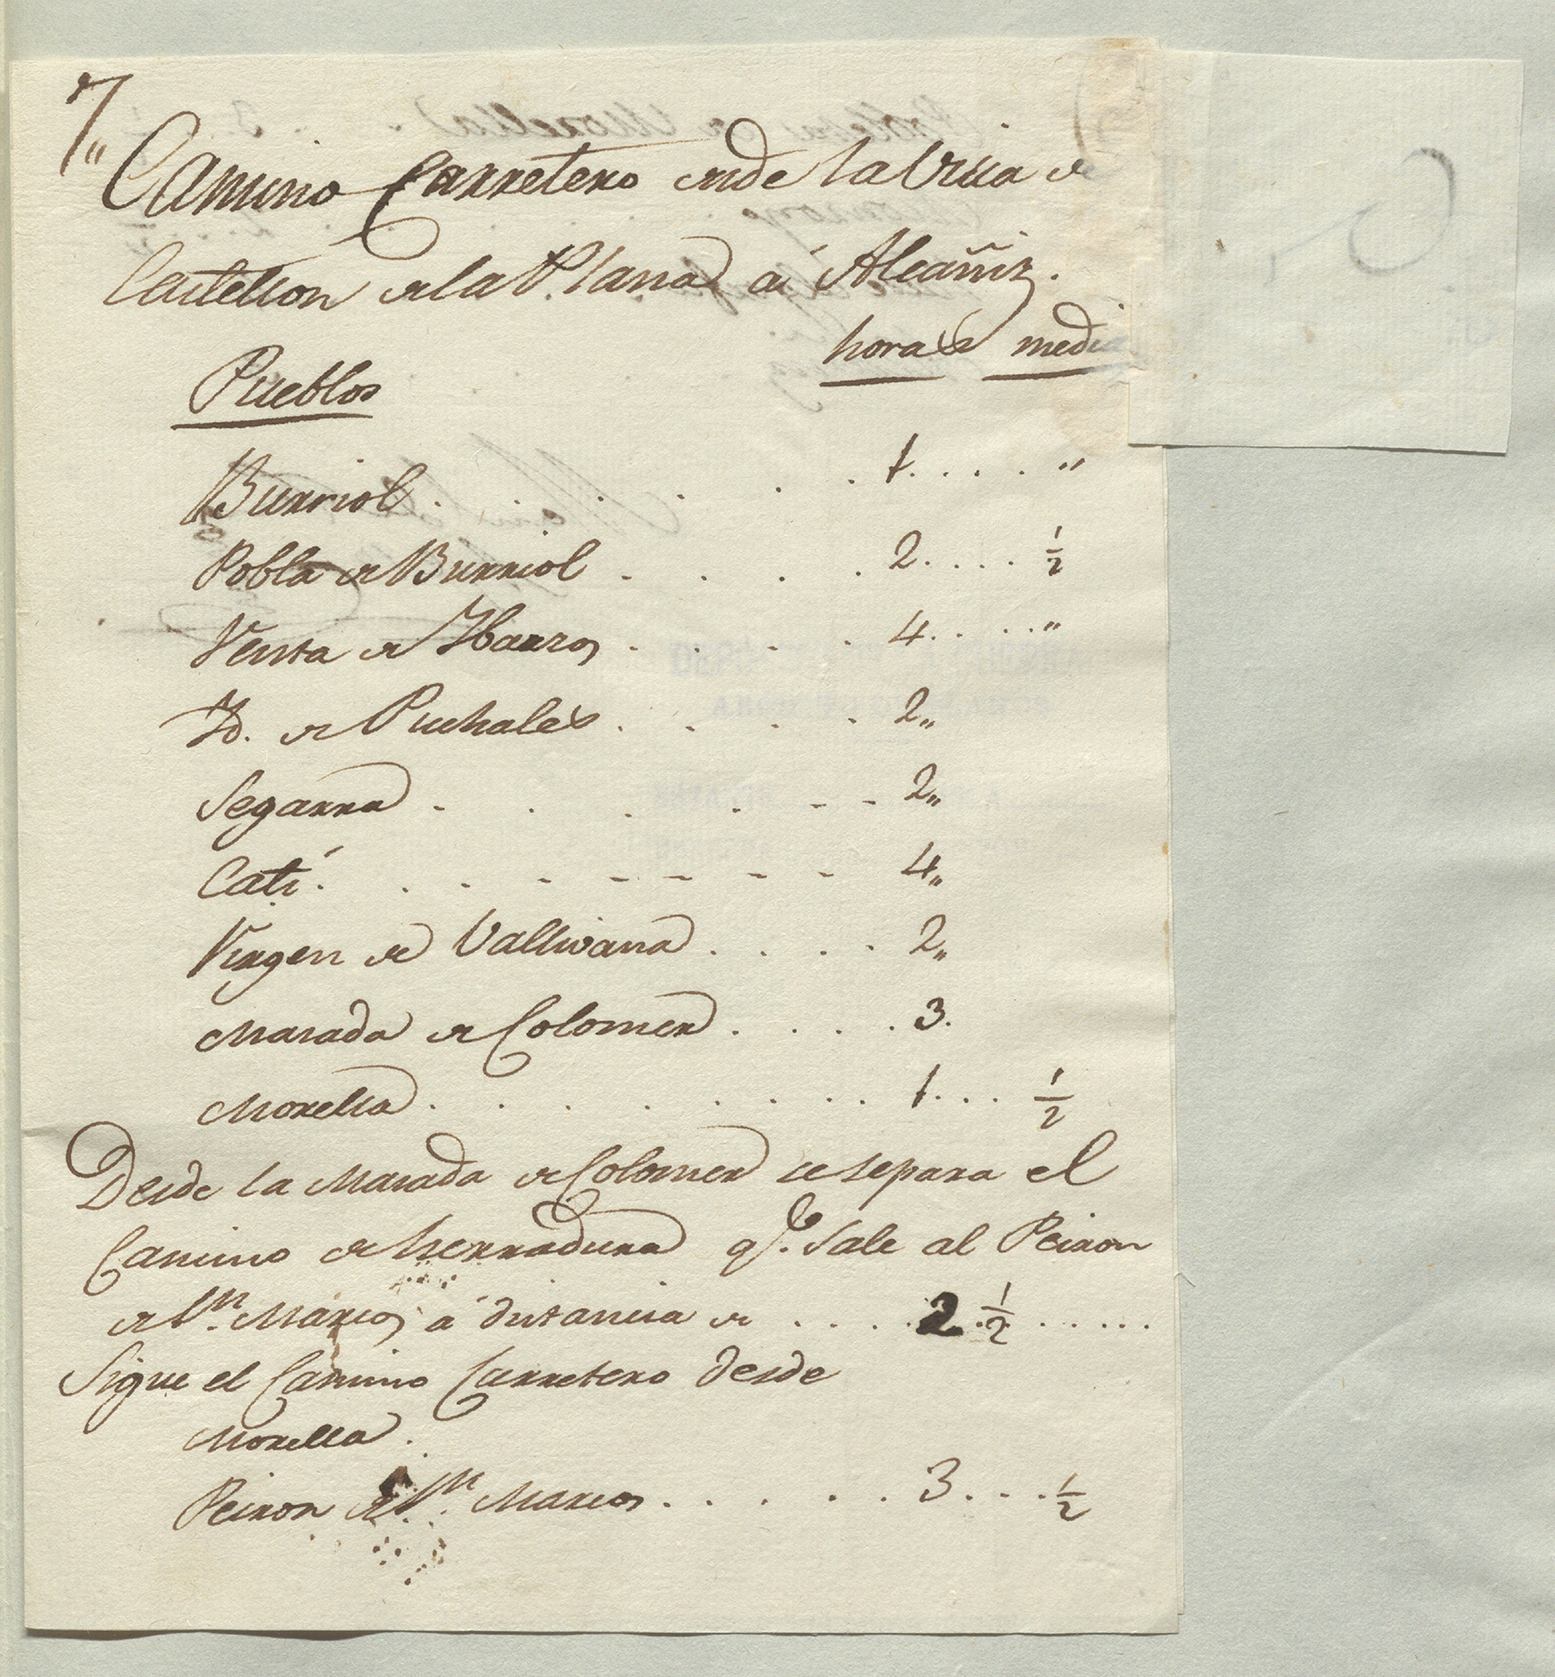 7,,
Camino Carretero desde la Villa de
Castellon de la Plana á Alcañiz.
horas medias
Pueblos
Burriol . . . . . . 1. . . . . "
Pobla de Burriol . . . . 2. . . . ½
Venta de Ybarzo, . . . . 4. . . . "
Yd. de Puchales . . . . 2,,
Segarra - . . . - - 2,,
Catí. . . - - - - - 4,,
Virgen de Vallivana . . . . 2,,
Masada de Colomer . . . . 3.
Morella . . . . . . . 1. . . ½
Desde la Masada de Colomer se separa el
Camino de herradura q.e sale al Peiron
de S.n Marcos á distancia de . . . . 2 ½ . . . . .
Sigue el Camino Carretero desde
Morella.
Peiron de S.n Marcos . . . . . 3. . . . ½